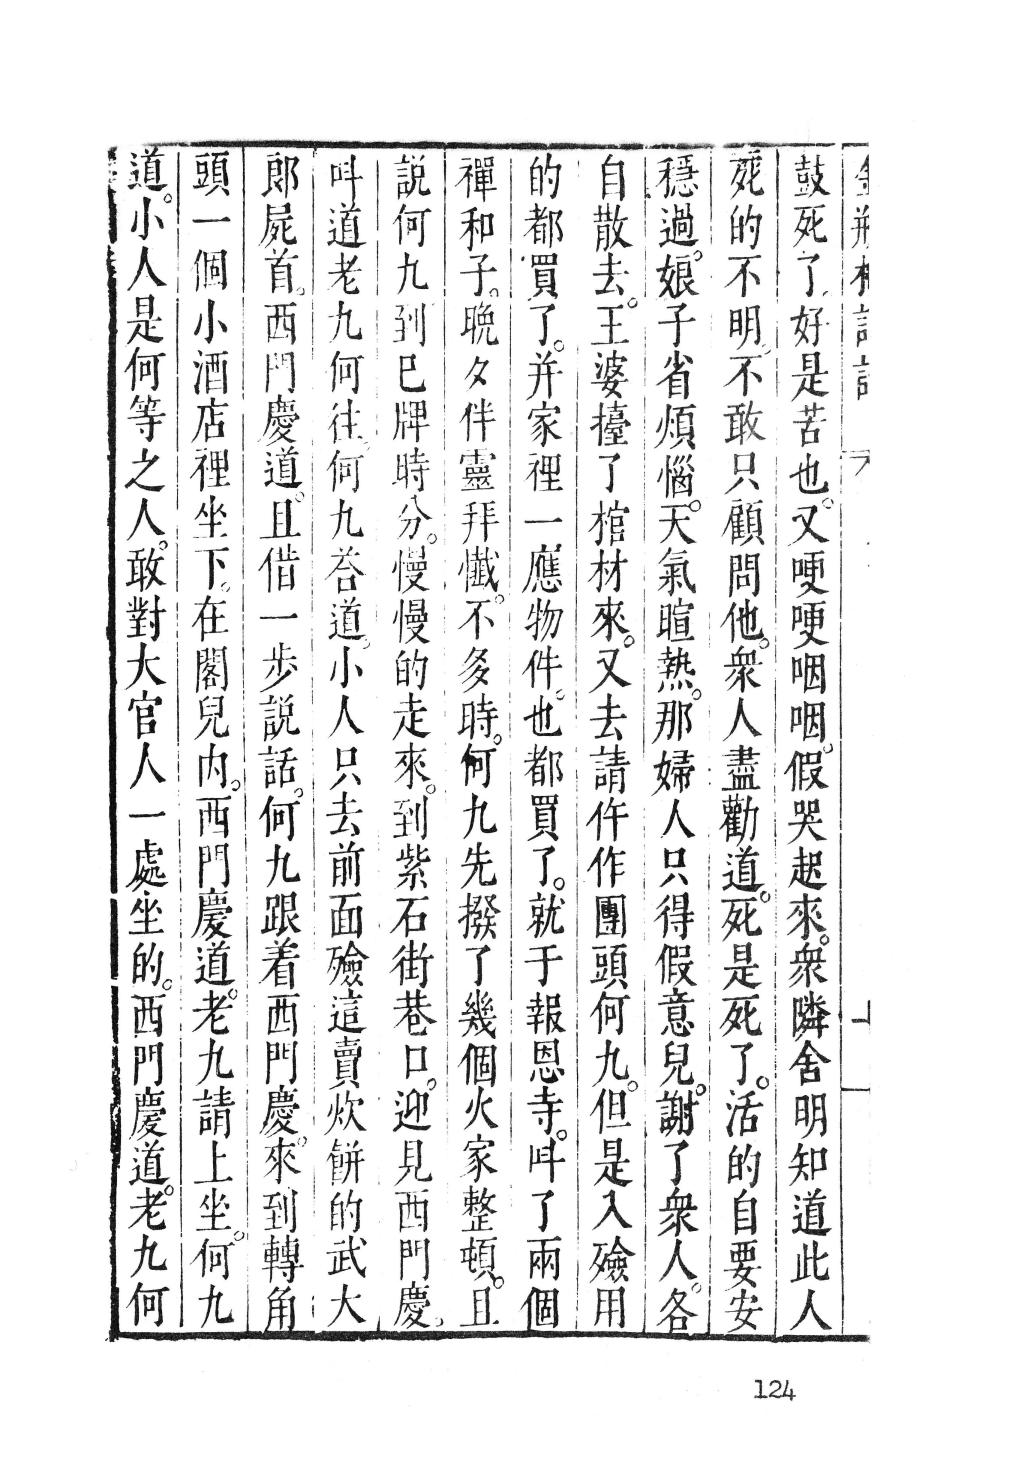 金瓶梅詞話
鼓死了。好是苦也。又哽哽咽咽。假哭起來。衆隣舍明知道此人
死的不明。不敢只顧問他。衆人盡勸道。死是死了。活的自要安
穩過。娘子省煩惱。天氣暄熱。那婦人只得假意兒。謝了衆人。各
自散去。王婆擡了棺材來。又去請仵作團頭何九。但是入殮用
的都買了。并家裡一應物件。也都買了。就于報恩寺。呌了兩個
禪和子。晩夕伴靈拜懺。不多時。何九先撥了幾個火家整頓。且
說何九到巳牌時分。慢慢的走來。到紫石街巷口。迎見西門慶。
呌道老九何往。何九荅道。小人只去前面殮這賣炊餅的武大
郎屍首。西門慶道。且借一步説話。何九跟着西門慶。來到轉角
頭一個小酒店裡坐下。在閣兒内。西門慶道。老九請上坐。何九
道。小人是何等之人。敢對大官人一處坐的。西門慶道。老九何
124